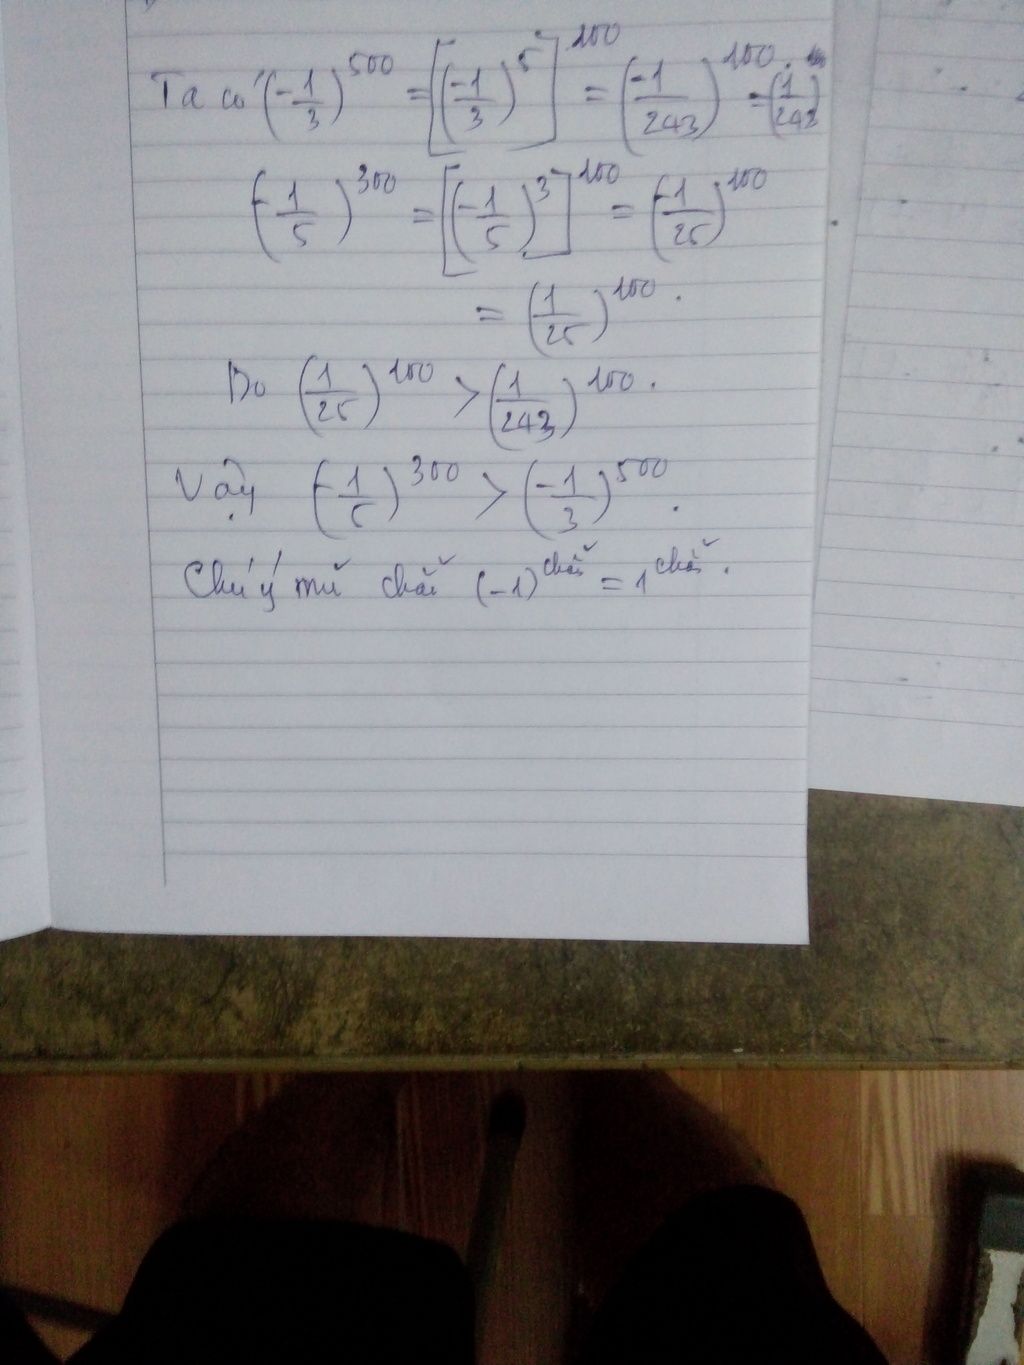 Ta có (-1/3)^500 = [(-1/3)^5]^100 = (-1/243)^100 = (1/243)
(-1/5)^300 = [(-1/5)^3]^100 = (-1/25)^100
= (1/25)^100.
Do (1/25)^100 > (1/243)^100.
Vậy (-1/5)^300 > (-1/3)^500.
Chú ý mũ chẵn (-1)^chẵn = 1^chẵn.